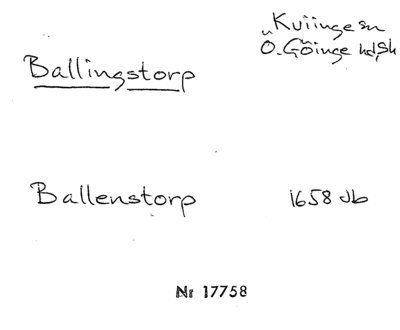 Kviinge sn
Ö. Göinge hd, Sk
Ballingstorp
Ballenstorp 1658 Jb
Nr 17758